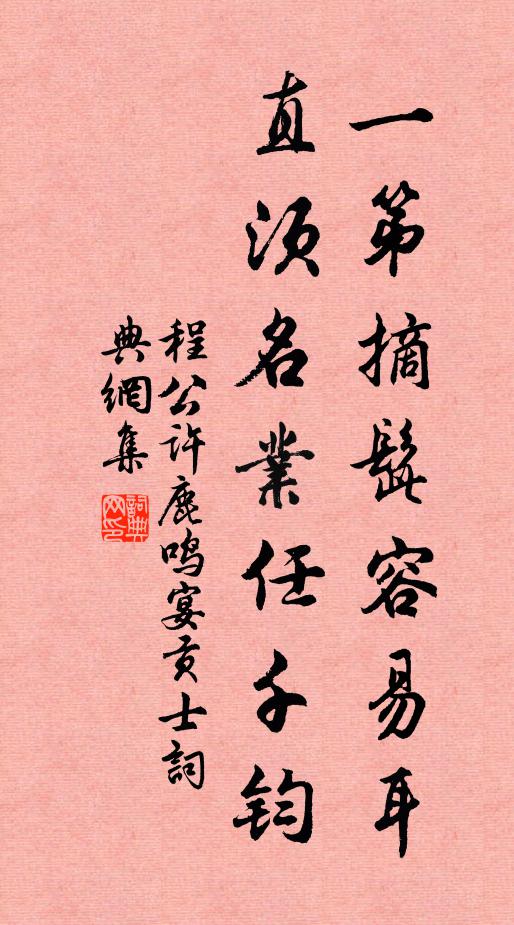 一第摘髭容易耳
直须名業任千钧
程公许鹿鳴宴贡士詞
典網集
詞典网印